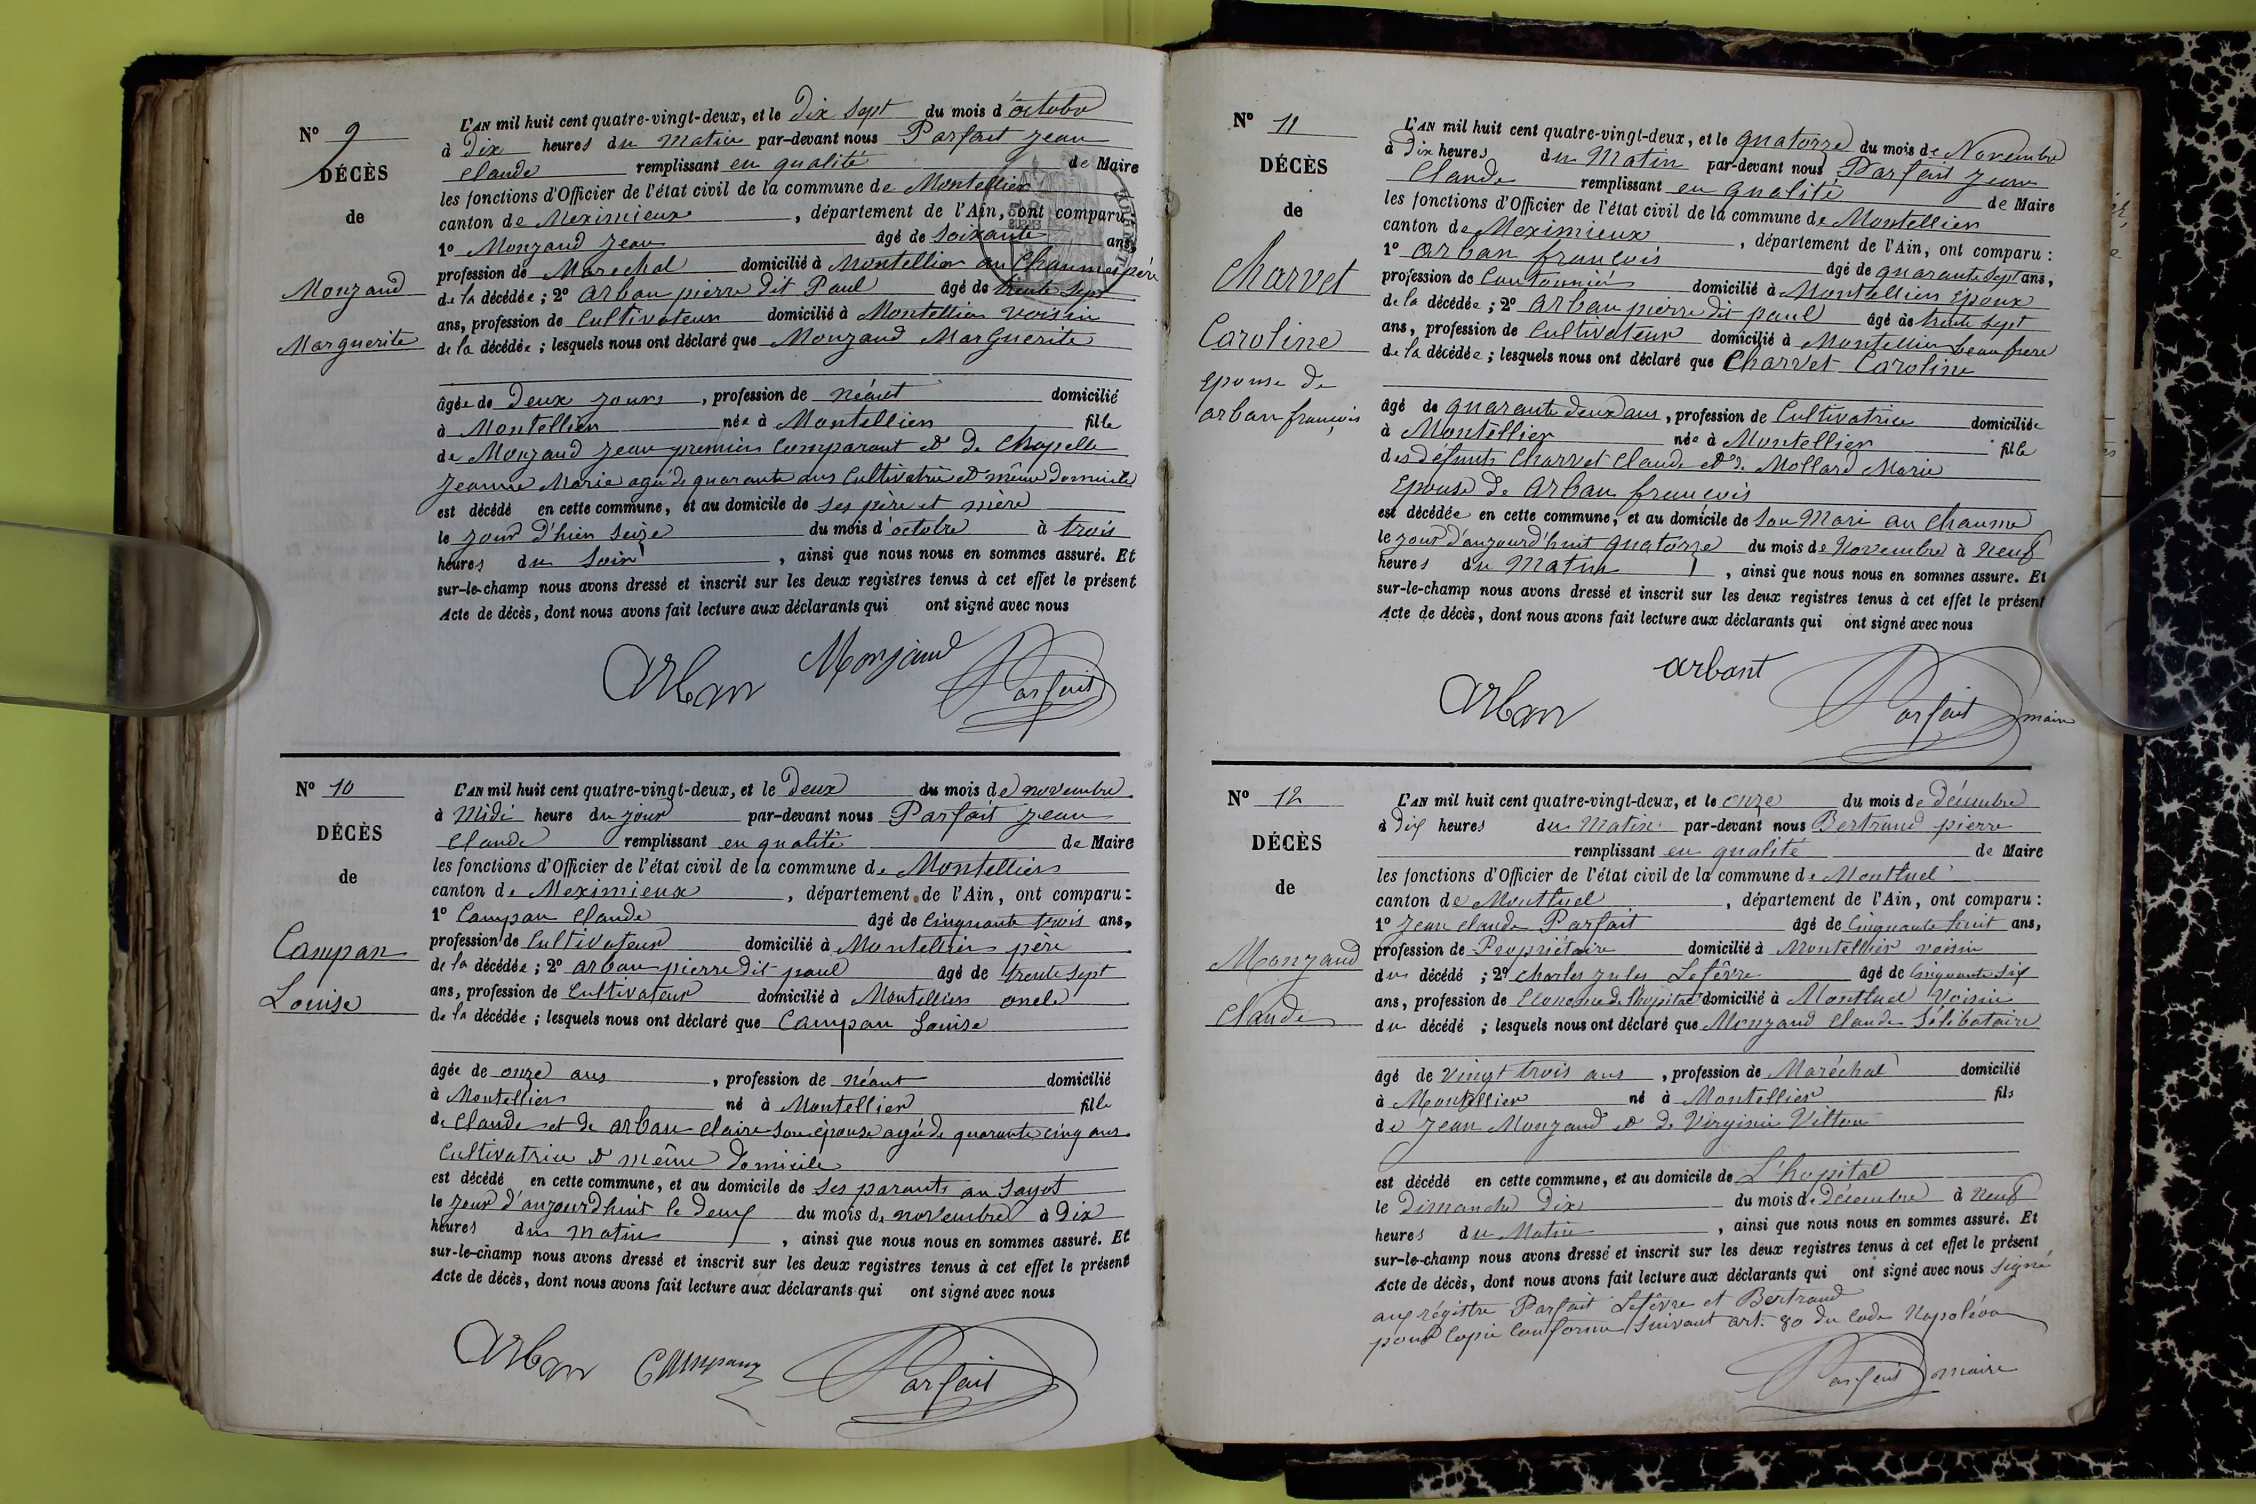 Nº 9
DÉCÈS
de
Monzand
Marguerite
L'AN mil huit cent quatre-vingt-deux, et le Dix sept du mois d'octobre
à Dix heures du matin par-devant nous Parfait Jean
Claude remplissant en qualité de Maire
les fonctions d'Officier de l'état civil de la commune de Montellier
canton de Meximieux, département de l'Ain, ont comparu
1º Monzand Jean âgé de soixante ans,
profession de Marechal domicilié à Montellier au Chaume père
de la décédée ; 2º Arban pierre dit Paul âgé de trente sept
ans, profession de Cultivateur domicilié à Montellier voisin
de la décédée ; lesquels nous ont déclaré que Monzand Marguerite
âgée de Deux jours, profession de néant domicilié
à Montellier née à Montellier fille
de Monzand Jean premier Comparant et de Chapelle
Jeanne Marie agée de quarante ans Cultivatrice et même Domicile
est décédé en cette commune, et au domicile de ses père et mère
le jour d'hier seize du mois d'octobre à trois
heures du soir, ainsi que nous nous en sommes assuré. Et
sur-le-champ nous avons dressé et inscrit sur les deux registres tenus à cet effet le présent
Acte de décès, dont nous avons fait lecture aux déclarants qui ont signé avec nous
Arban Monjand Parfait
Nº 10
DÉCÈS
de
Campan
Louise
L'AN mil huit cent quatre-vingt-deux, et le Deux du mois de novembre
à Midi heure du jour par-devant nous Parfait Jean
Claude remplissant en qualité de Maire
les fonctions d'Officier de l'état civil de la commune de Montellier
canton de Meximieux, département de l'Ain, ont comparu :
1º Campan Claude âgé de Cinquante trois ans,
profession de Cultivateur domicilié à Montellier père
de la décédée ; 2º Arban pierre dit paul âgé de trente sept
ans, profession de Cultivateur domicilié à Montellier oncle
de la décédée ; lesquels nous ont déclaré que Campan Louise
âgée de onze ans, profession de néant domicilié
à Montellier né à Montellier fille
de Claude et de Arban Claire son épouse agée de quarante cinq ans
Cultivatrice et même Domicile
est décédé en cette commune, et au domicile de ses parents au Sayot
le jour d'aujourd'huit le deux du mois de novembre à Dix
heures du matin, ainsi que nous nous en sommes assuré. Et
sur-le-champ nous avons dressé et inscrit sur les deux registres tenus à cet effet le présent
Acte de décès, dont nous avons fait lecture aux déclarants qui ont signé avec nous
Arban Campan Parfait
Nº 11
DÉCÈS
de
Charvet
Caroline
Epouse de
arban françois
L'AN mil huit cent quatre-vingt-deux, et le quatorze du mois de Novembre
à Dix heures du Matin par-devant nous Parfait Jean
Claude remplissant en qualité de Maire
les fonctions d'Officier de l'état civil de la commune de Montellier
canton de Meximieux, département de l'Ain, ont comparu :
1º Arban françois âgé de quarante sept ans,
profession de Cantonnier domicilié à Montellier Epoux
de la décédée ; 2º Arban pierre dit paul âgé de trente sept
ans, profession de Cultivateur domicilié à Montellier beau frere
de la décédée ; lesquels nous ont déclaré que Charvet Caroline
âgé de quarante deux ans, profession de Cultivatrice domiciliée
à Montellier née à Montellier fille
des défunts Charvet Claude et de Mollard Marie
Epouse de Arban françois
est décédée en cette commune, et au domicile de son Mari au Chaume
le jour d'aujourd'huit quatorze du mois de Novembre à Neuf
heures du Matin, ainsi que nous nous en sommes assuré. Et
sur-le-champ nous avons dressé et inscrit sur les deux registres tenus à cet effet le présent
Acte de décès, dont nous avons fait lecture aux déclarants qui ont signé avec nous
Arban arbant Parfait maire
Nº 12
DÉCÈS
de
Monzand
Claude
L'AN mil huit cent quatre-vingt-deux, et le onze du mois de Décembre
à Dix heures du Matin par-devant nous Bertrand pierre
remplissant en qualité de Maire
les fonctions d'Officier de l'état civil de la commune de Montluel
canton de Montluel, département de l'Ain, ont comparu :
1º Jean Claude Parfait âgé de Cinquante huit ans,
profession de Propriétaire domicilié à Montellier voisin
du décédé ; 2º Charles Jules Lefèvre âgé de Cinquante six
ans, profession de Econome de l'hopital domicilié à Montluel Voisin
du décédé ; lesquels nous ont déclaré que Monzand Claude Sélibataire
âgé de vingt trois ans, profession de Maréchal domicilié
à Montellier né à Montellier fils
de Jean Monzand et de Virginie Vitton
est décédé en cette commune, et au domicile de L'hopital
le Dimanche Dix du mois de Décembre à Neuf
heures du Matin, ainsi que nous nous en sommes assuré. Et
sur-le-champ nous avons dressé et inscrit sur les deux registres tenus à cet effet le présent
Acte de décès, dont nous avons fait lecture aux déclarants qui ont signé avec nous signé
aux régistre Parfait Lefèvre et Bertrand
pour Copie Conforme Suivant art. 80 du Code Napoléon
Parfait maire